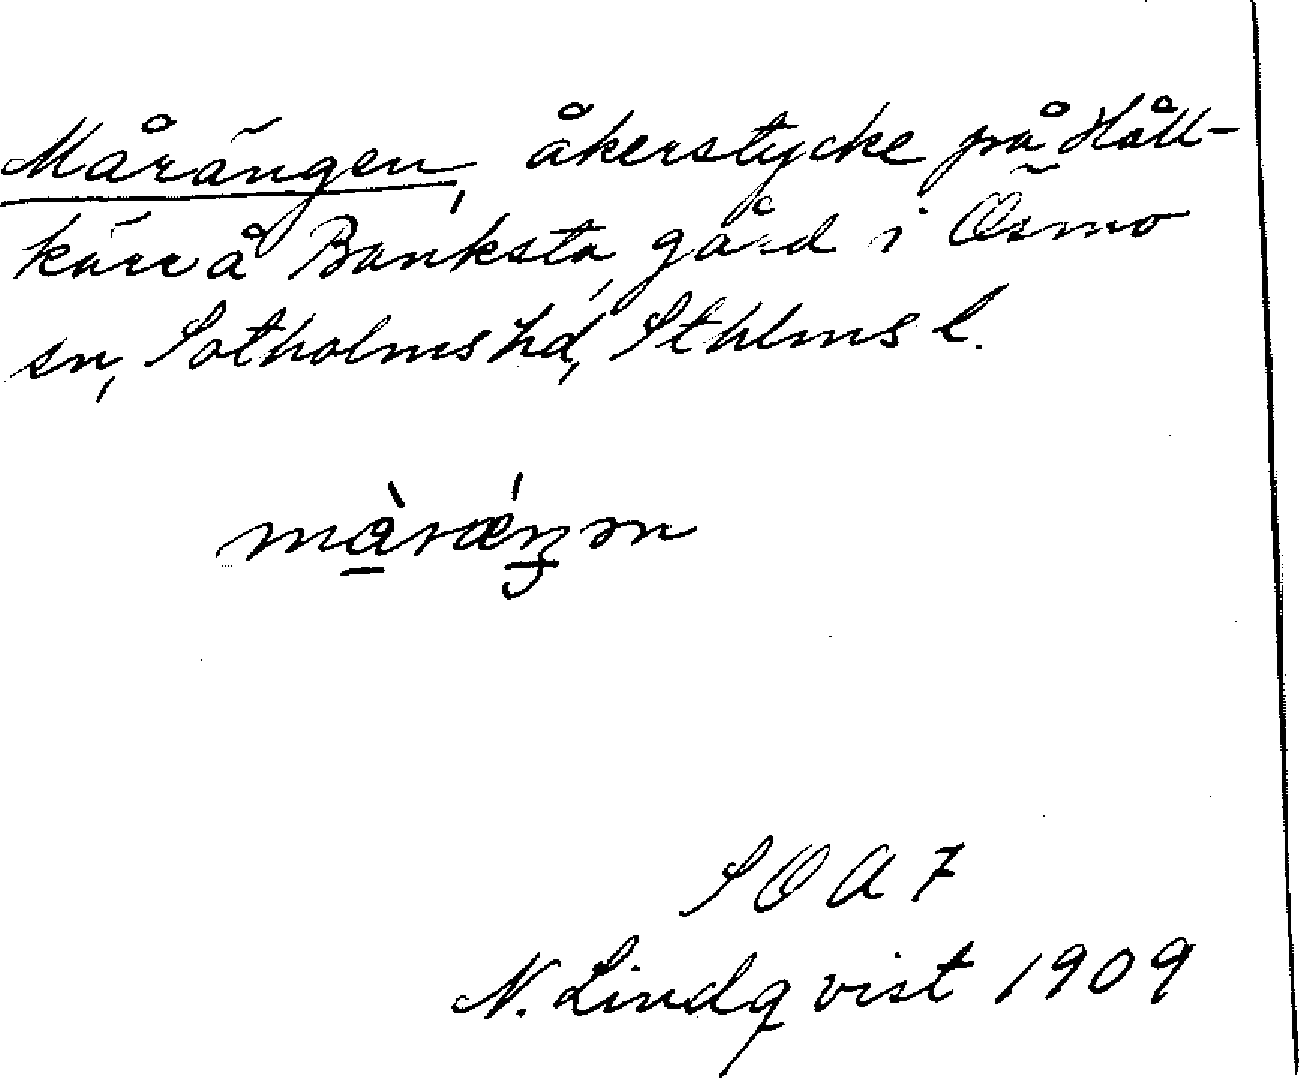 Mårängen, åkerstycke på Håll-
kärr å Banksta gård i Ösmo
sn, Sotholms hd, Sthlms l.
SOA 7
N. Lindqvist 1909